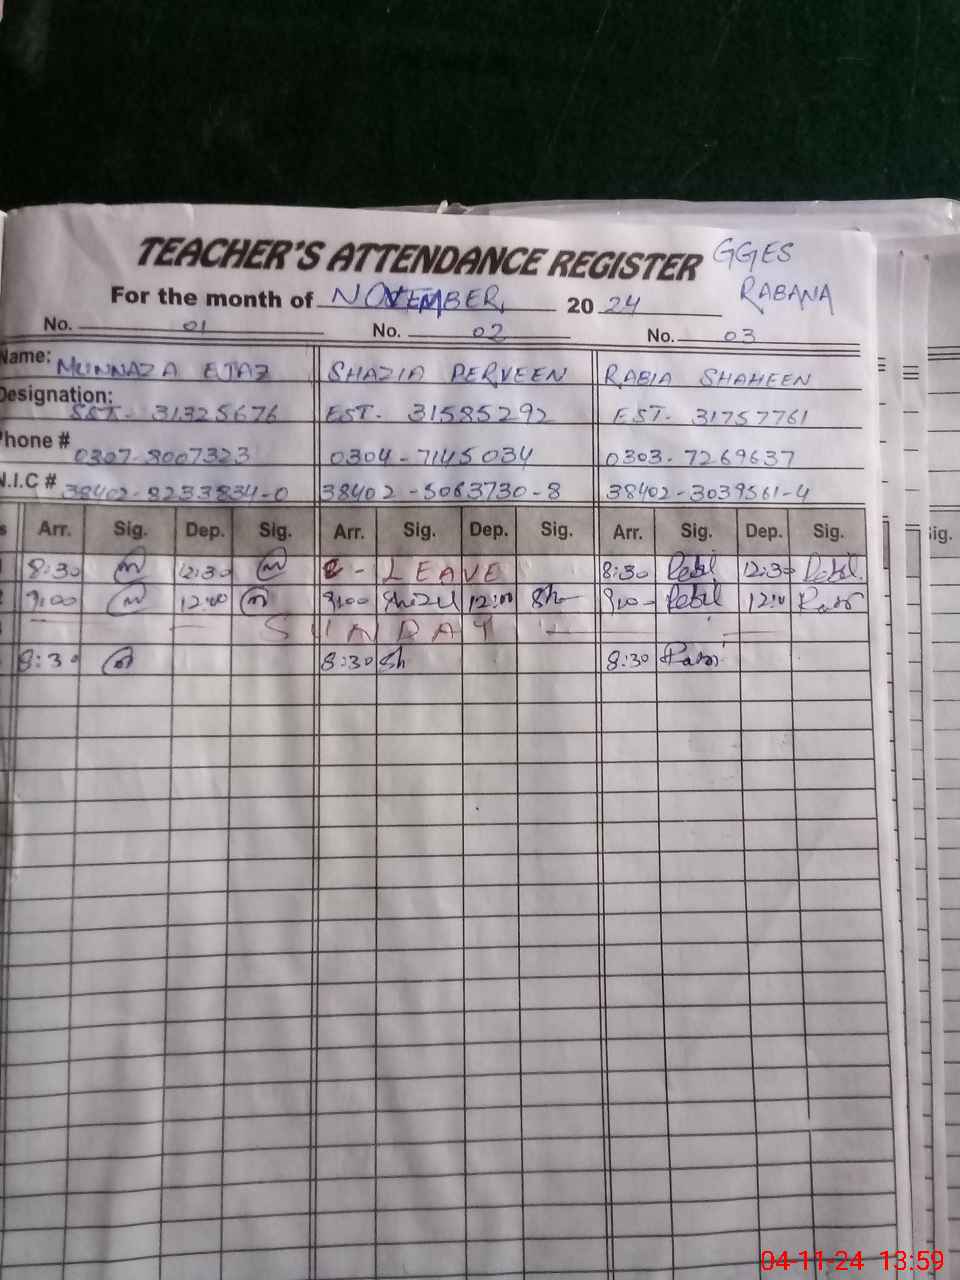 TEACHER'S ATTENDANCE REGISTER GGES
For the month of NOVEMBER 2024 RABANA
No. 01 No. 02 No. 03
Name: MUNNAZA EJAZ SHAZIA PERVEEN RABIA SHAHEEN
Designation: SST- 31325676 EST- 31585292 EST- 31757761
Phone # 0307-8007323 0304-7145034 0303-7269637
N.I.C # 38402-8233834-0 38402-5063730-8 38402-3039561-4
Arr. Sig. Dep. Sig. Arr. Sig. Dep. Sig. Arr. Sig. Dep. Sig. ig.
8:30 12:30 - LEAVE 8:30 12:30
9:00 12:00 9:00 12:00 Sh 9:00 12:00
SUNDAY
8:30 8:30 Sh 8:30
04-11-24 13:59